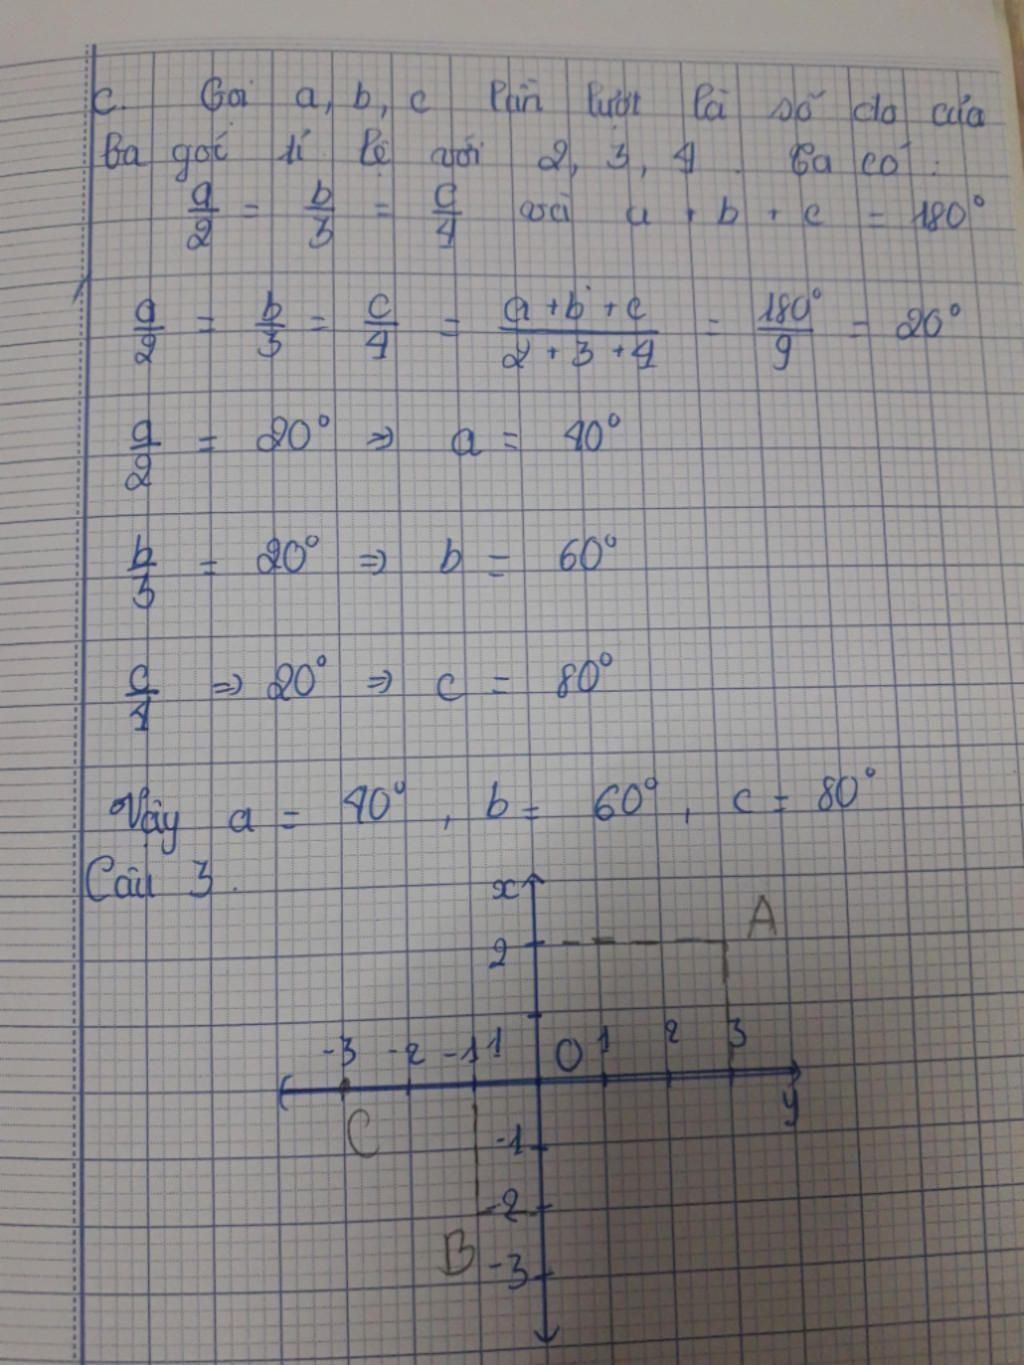 c. Gọi a, b, c lần lượt là số đo của
ba góc tỉ lệ với 2, 3, 4. Ta có:
a/2 = b/3 = c/4 và a + b + c = 180°
a/2 = b/3 = c/4 = (a + b + c)/(2 + 3 + 4) = 180°/9 = 20°
a/2 = 20° ⇒ a = 40°
b/3 = 20° ⇒ b = 60°
c/4 ⇒ 20° ⇒ c = 80°
Vậy a = 40°, b = 60°, c = 80°
Câu 3.
x
A
2
-3 -2 -1 1 O 1 2 3
y
C
-1
-2
B
-3